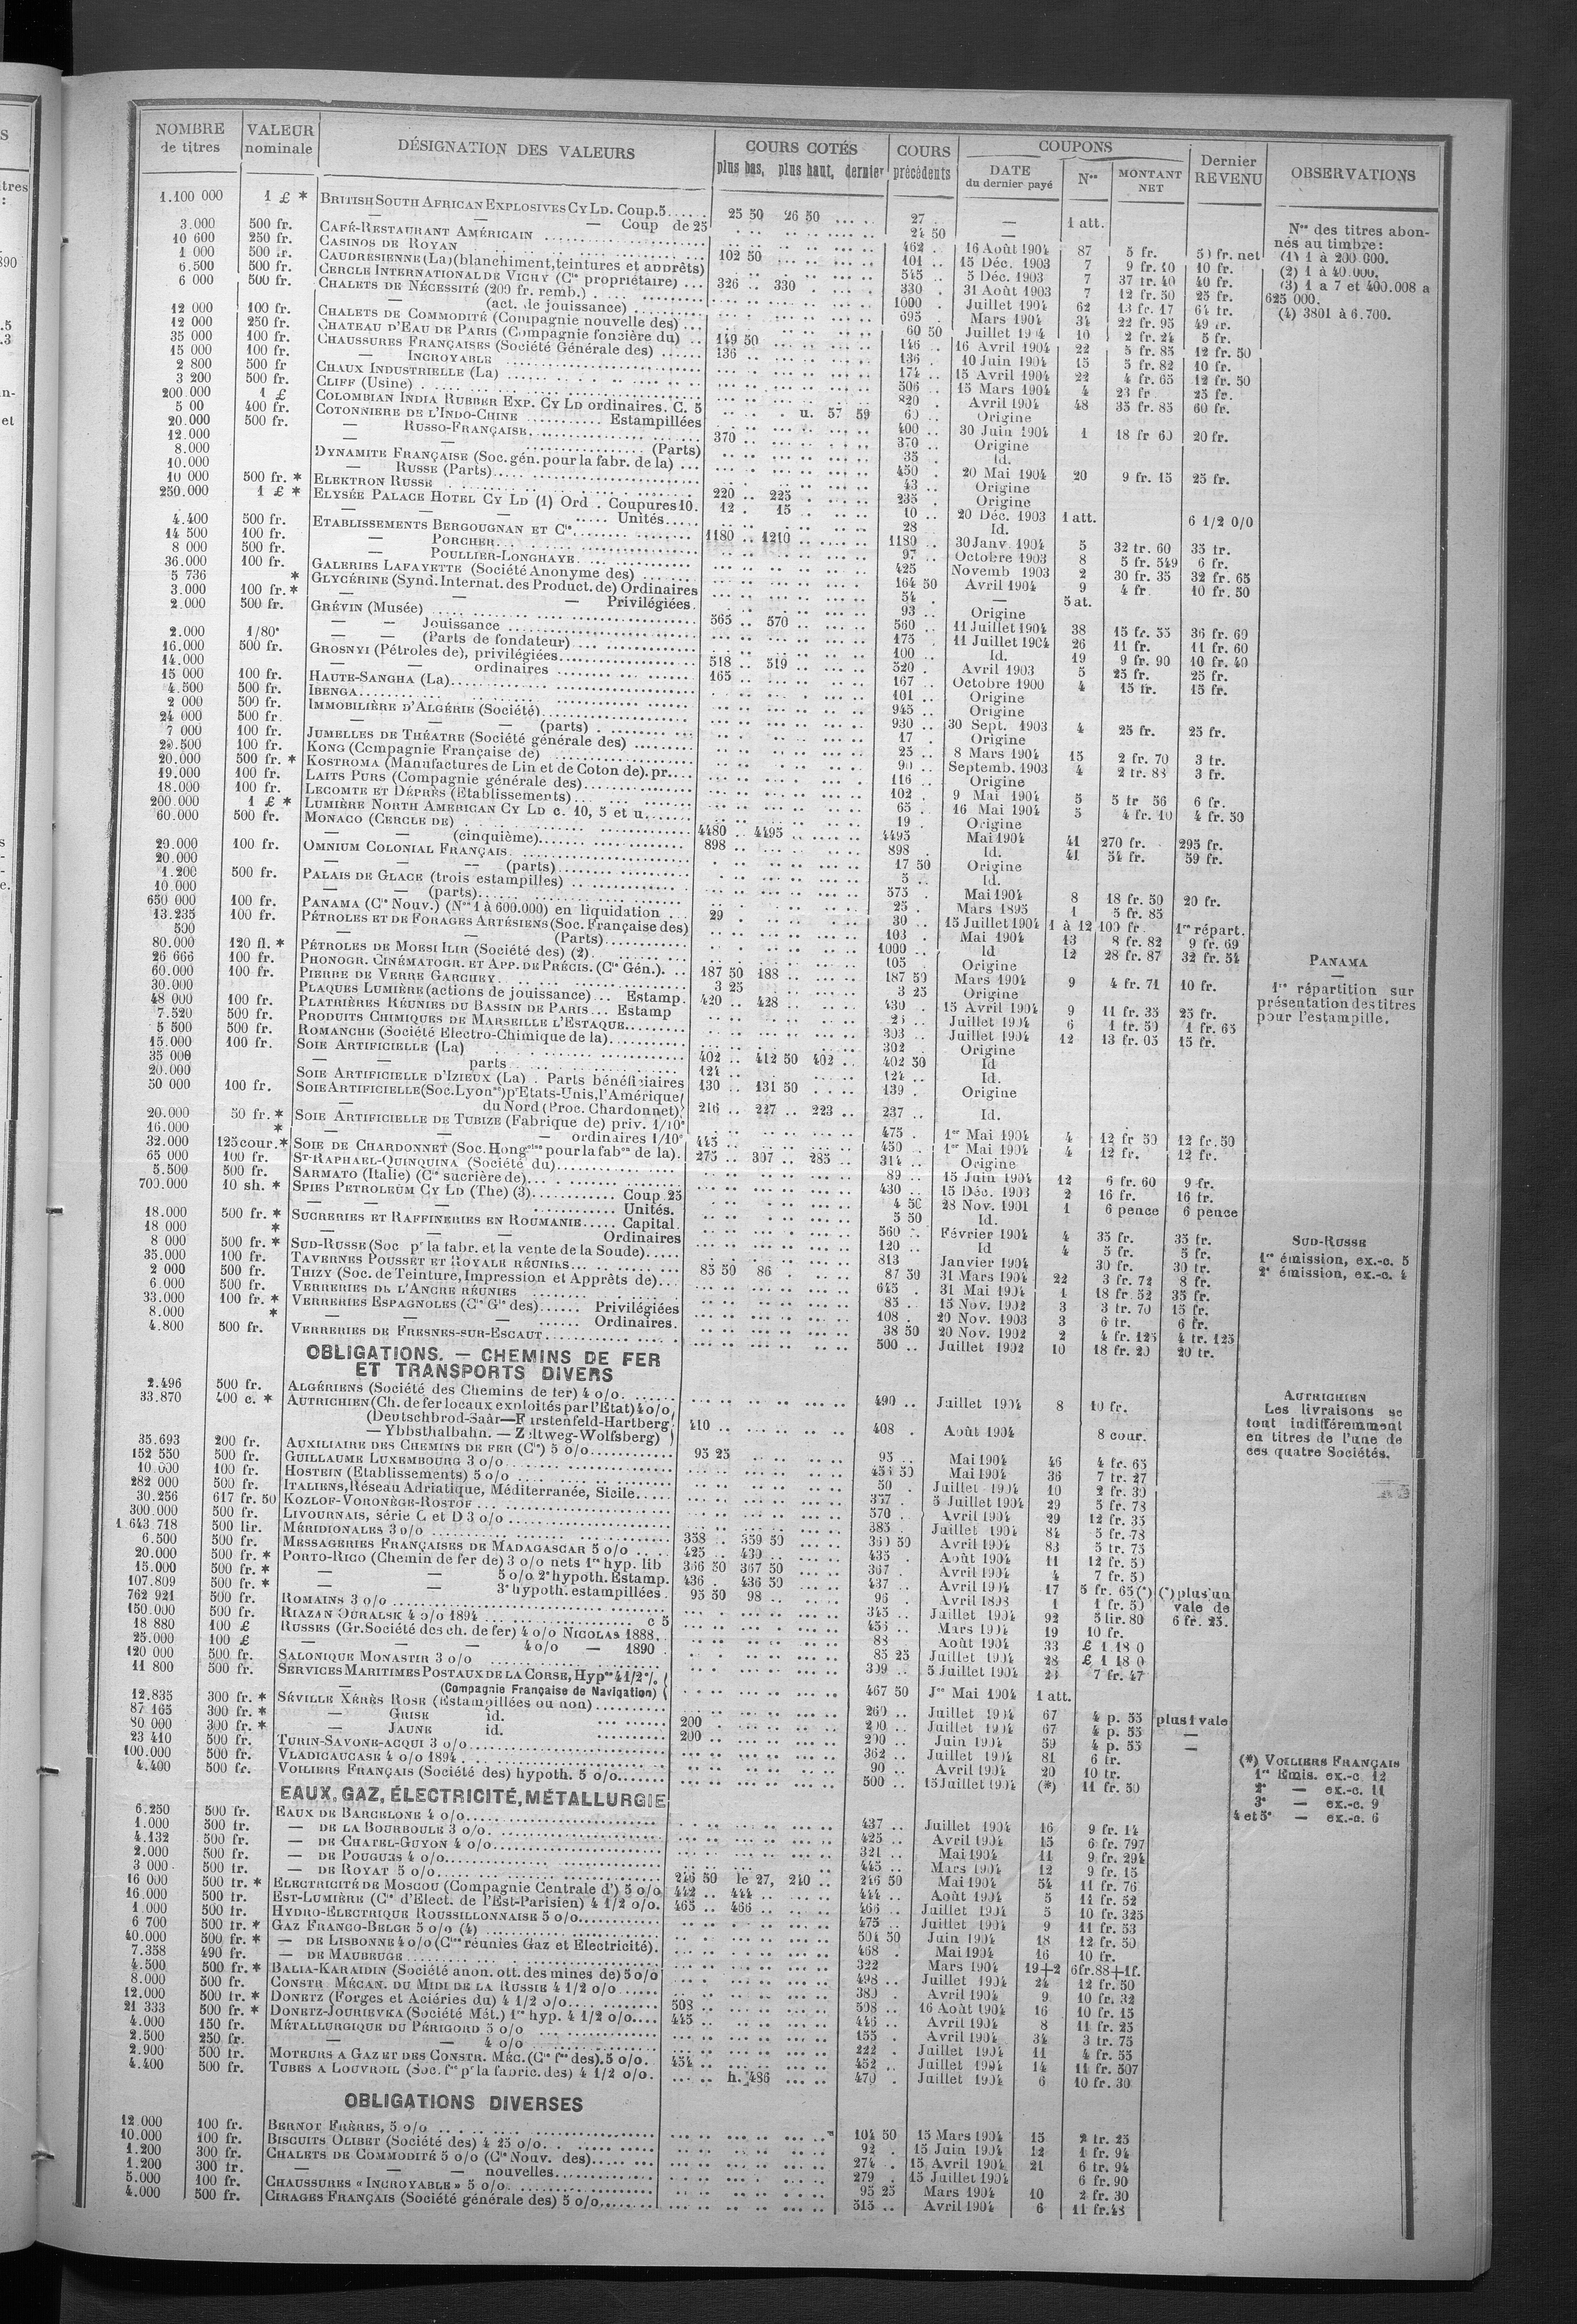 NOMBRE de titres | VALEUR nominale | DÉSIGNATION DES VALEURS | COURS COTÉS plus bas, plus haut, dernier | COURS précédents | COUPONS DATE du dernier payé | Nos | MONTANT NET | Dernier REVENU | OBSERVATIONS
1.100 000 1 £ * BRITISH SOUTH AFRICAN EXPLOSIVES CY LD. Coup. 5 25 50 26 50 27 — 1 att.
— — — Coup de 25 24 50 —
3.000 500 fr. CAFÉ-RESTAURANT AMÉRICAIN 462 16 Août 1904 87 5 fr. 50 fr. net
10 600 250 fr. CASINOS DE ROYAN 102 50 101 15 Déc. 1903 7 9 fr. 10 10 fr.
1 000 500 fr. CAUDRÉSIENNE (La) (blanchiment, teintures et apprêts) 545 5 Déc. 1903 7 37 fr. 40 40 fr.
6.500 500 fr. CERCLE INTERNATIONAL DE VICHY (Cie propriétaire) 326 330 330 31 Août 1903 7 12 fr. 50 25 fr.
6 000 500 fr. CHALETS DE NÉCESSITÉ (200 fr. remb.) 1000 Juillet 1904 62 13 fr. 17 64 fr.
— (act. de jouissance) 695 Mars 1904 34 22 fr. 95 49 fr.
12 000 100 fr. CHALETS DE COMMODITÉ (Compagnie nouvelle des) 60 50 Juillet 1904 10 2 fr. 24 5 fr.
12 000 250 fr. CHATEAU D'EAU DE PARIS (Compagnie foncière du) 149 50 146 16 Avril 1904 22 5 fr. 85 12 fr. 50
35 000 100 fr. CHAUSSURES FRANÇAISES (Société Générale des) 136 136 10 Juin 1904 15 5 fr. 82 10 fr.
15 000 100 fr. — INCROYABLE 174 15 Avril 1904 22 4 fr. 65 12 fr. 50
2 800 500 fr CHAUX INDUSTRIELLE (La) 506 15 Mars 1904 4 23 fr 25 fr.
3 200 500 fr. CLIFF (Usine) 820 Avril 1904 48 35 fr. 85 60 fr.
200.000 1 £ COLOMBIAN INDIA RUBBER EXP. CY LD ordinaires. C. 5 u. 57 59 60 Origine
5 00 400 fr. COTONNIERE DE L'INDO-CHINE Estampillées 400 30 Juin 1904 1 18 fr 60 20 fr.
20.000 500 fr. — RUSSO-FRANÇAISE 370 370 Origine
12.000 — — (Parts) 35 Id.
8.000 DYNAMITE FRANÇAISE (Soc. gén. pour la fabr. de la) 450 20 Mai 1904 20 9 fr. 15 25 fr.
10.000 — RUSSE (Parts) 43 Origine
10 000 500 fr. * ELEKTRON RUSSE 220 225 235 Origine
250.000 1 £ * ELYSÉE PALACE HOTEL CY LD (1) Ord. Coupures 10. 12 15 10 20 Déc. 1903 1 att. 6 1/2 0/0
— — — Unités 28 Id.
4.400 500 fr. ETABLISSEMENTS BERGOUGNAN ET Cie 1180 1210 1180 30 Janv. 1904 5 32 fr. 60 35 fr.
14 500 100 fr. — PORCHER 97 Octobre 1903 8 5 fr. 549 6 fr.
8 000 500 fr. — POULLIER-LONGHAYE 425 Novemb 1903 2 30 fr. 35 32 fr. 65
36.000 100 fr. GALERIES LAFAYETTE (Société Anonyme des) 164 50 Avril 1904 9 4 fr 10 fr. 50
5 736 * GLYCÉRINE (Synd. Internat. des Product. de) Ordinaires 54 — 5 at.
3.000 100 fr. * — — — Privilégiées 93 Origine
2.000 500 fr. GRÉVIN (Musée) 565 570 560 11 Juillet 1904 38 15 fr. 55 36 fr. 60
— — Jouissance 175 11 Juillet 1904 26 11 fr. 11 fr. 60
2.000 1/80e — — (Parts de fondateur) 100 Id. 19 9 fr. 90 10 fr. 40
16.000 500 fr. GROSNYI (Pétroles de), privilégiées 518 519 520 Avril 1903 5 25 fr. 25 fr.
14.000 — — ordinaires 165 167 Octobre 1900 4 15 fr. 15 fr.
15 000 100 fr. HAUTE-SANGHA (La) 101 Origine
4.500 500 fr. IBENGA 945 Origine
2 000 500 fr. IMMOBILIÈRE D'ALGÉRIE (Société) 930 30 Sept. 1903 4 25 fr. 25 fr.
24 000 500 fr. — — — (parts) 17 Origine
7 000 100 fr. JUMELLES DE THÉATRE (Société générale des) 25 8 Mars 1904 15 2 fr. 70 3 fr.
20.500 100 fr. KONG (Compagnie Française de) 90 Septemb. 1903 4 2 fr. 88 3 fr.
20.000 500 fr. * KOSTROMA (Manufactures de Lin et de Coton de). pr. 116 Origine
19.000 100 fr. LAITS PURS (Compagnie générale des) 102 9 Mai 1904 5 5 fr 56 6 fr.
18.000 100 fr. LECOMTE ET DÉPRÈS (Etablissements) 65 16 Mai 1904 5 4 fr. 10 4 fr. 50
200.000 1 £ * LUMIÈRE NORTH AMERICAN CY LD c. 10, 5 et u. 19 Origine
60.000 500 fr. MONACO (CERCLE DE) 4480 4495 4495 Mai 1904 41 270 fr. 295 fr.
— — (cinquième) 898 898 Id. 41 54 fr. 59 fr.
20.000 100 fr. OMNIUM COLONIAL FRANÇAIS 17 50 Origine
20.000 — — (parts) 5 Id.
1.200 500 fr. PALAIS DE GLACE (trois estampilles) 575 Mai 1904 8 18 fr. 50 20 fr.
10.000 — — (parts) 25 Mars 1895 1 5 fr. 85
650 000 100 fr. PANAMA (Cie Nouv.) (Nos 1 à 600.000) en liquidation 29 30 15 Juillet 1904 1 à 12 100 fr 1re répart.
13.235 100 fr. PÉTROLES ET DE FORAGES ARTÉSIENS (Soc. Française des) 103 Mai 1904 13 8 fr. 82 9 fr. 69
500 — — (Parts) 1000 Id 12 28 fr. 87 32 fr. 54
80.000 120 fl. * PÉTROLES DE MOESI ILIR (Société des) (2) 105 Origine
26 666 100 fr. PHONOGR. CINÉMATOGR. ET APP. DE PRÉCIS. (Cie Gén.). 187 50 188 187 50 Mars 1904 9 4 fr. 71 10 fr.
60.000 100 fr. PIERRE DE VERRE GARCHEY 3 25 3 25 Origine
30.000 PLAQUES LUMIÈRE (actions de jouissance) Estamp. 420 428 430 15 Avril 1904 9 11 fr. 35 25 fr.
48 000 100 fr. PLATRIÈRES RÉUNIES DU BASSIN DE PARIS Estamp Juillet 1904 6 1 fr. 50 1 fr. 65
7.520 500 fr. PRODUITS CHIMIQUES DE MARSEILLE L'ESTAQUE 303 Juillet 1904 12 13 fr. 05 15 fr.
5 500 500 fr. ROMANCHE (Société Electro-Chimique de la) 302 Origine
15.000 100 fr. SOIE ARTIFICIELLE (La) 402 412 50 402 402 50 Id
35 000 — — parts 124 124 Id.
20.000 SOIE ARTIFICIELLE D'IZIEUX (La). Parts bénéficiaires 130 131 50 139 Origine
50 000 100 fr. SOIE ARTIFICIELLE (Soc. Lyonse) pr Etats-Unis, l'Amérique
— du Nord (Proc. Chardonnet) 216 227 223 237 Id.
20.000 50 fr. * SOIE ARTIFICIELLE DE TUBIZE (Fabrique de) priv. 1/10e 475 1er Mai 1904 4 12 fr 50 12 fr. 50
16.000 * — — ordinaires 1/10e 445 450 1er Mai 1904 4 12 fr. 12 fr.
32.000 125 cour. * SOIE DE CHARDONNET (Soc. Hongoise pour la fabon de la). 275 307 285 314 Origine
65 000 100 fr. ST-RAPHAEL-QUINQUINA (Société du) 89 15 Juin 1904 12 6 fr. 60 9 fr.
5.500 500 fr. SARMATO (Italie) (Cie sucrière de) 430 15 Déc. 1903 2 16 fr. 16 fr.
700.000 10 sh. * SPIES PETROLEUM CY LD (The) (3) Coup. 25 4 50 28 Nov. 1901 1 6 pence 6 pence
— — — Unités. 5 50 Id.
18.000 500 fr. * SUCRERIES ET RAFFINERIES EN ROUMANIE Capital. 560 Février 1904 4 35 fr. 35 fr.
18 000 * — — Ordinaires 120 Id 4 5 fr. 5 fr.
8 000 500 fr. * SUD-RUSSE (Soc pr la fabr. et la vente de la Soude) 813 Janvier 1904 30 fr. 30 fr.
35.000 100 fr. TAVERNES POUSSET ET ROYALE RÉUNIES 85 50 86 87 50 31 Mars 1904 22 3 fr. 72 8 fr.
2 000 500 fr. THIZY (Soc. de Teinture, Impression et Apprêts de) 645 31 Mai 1904 1 18 fr. 52 35 fr.
6.000 500 fr. VERRERIES DE L'ANCRE RÉUNIES 85 15 Nov. 1902 3 3 fr. 70 15 fr.
33.000 100 fr. * VERRERIES ESPAGNOLES (Cie Gle des) Privilégiées 108 20 Nov. 1903 3 6 fr. 6 fr.
8.000 * — — — Ordinaires. 38 50 20 Nov. 1902 2 4 fr. 125 4 fr. 125
4.800 500 fr. VERRERIES DE FRESNES-SUR-ESCAUT 500 Juillet 1902 10 18 fr. 20 20 fr.
OBLIGATIONS. — CHEMINS DE FER
ET TRANSPORTS DIVERS
2.496 500 fr. ALGÉRIENS (Société des Chemins de fer) 4 o/o. 490 Juillet 1904 8 10 fr.
33.870 400 c. * AUTRICHIEN (Ch. de fer locaux exploités par l'Etat) 4 o/o
(Deutschbrod-Saar—Furstenfeld-Hartberg
— Ybbsthalbahn. — Zeltweg-Wolfsberg) 410 408 Août 1904 8 cour.
35.693 200 fr. AUXILIAIRE DES CHEMINS DE FER (Cie) 5 o/o 95 25 95 Mai 1904 46 4 fr. 65
152 550 500 fr. GUILLAUME LUXEMBOURG 3 o/o 454 50 Mai 1904 36 7 fr. 27
10.000 100 fr. HOSTEIN (Etablissements) 5 o/o 50 Juillet 1904 10 2 fr. 30
282 000 500 fr. ITALIENS, Réseau Adriatique, Méditerranée, Sicile 357 5 Juillet 1904 29 5 fr. 78
30.256 617 fr. 50 KOZLOF-VORONÈGE-ROSTOF 570 Avril 1904 29 12 fr. 35
300.000 500 fr. LIVOURNAIS, série C et D 3 o/o 385 Juillet 1904 84 5 fr. 78
1 643 718 500 lir. MÉRIDIONALES 3 o/o 358 359 50 360 50 Avril 1904 83 5 fr. 75
6.500 500 fr. MESSAGERIES FRANÇAISES DE MADAGASCAR 5 o/o 425 430 435 Août 1904 11 12 fr. 50
20.000 500 fr. * PORTO-RICO (Chemin de fer de) 3 o/o nets 1re hyp. lib 366 50 367 50 367 Avril 1904 4 7 fr. 50
15.000 500 fr. * — — 5 o/o 2e hypoth. Estamp. 436 436 50 437 Avril 1904 17 5 fr. 65 (*) (*) plus un
107.809 500 fr. * — — 3e hypoth. estampillées 95 50 98 96 Avril 1898 1 1 fr. 50 vale de
762 921 500 fr. ROMAINS 3 o/o 345 Juillet 1904 92 5 lir. 80 6 fr. 25.
150.000 500 fr. RIAZAN OURALSK 4 o/o 1894 c 5 455 Mars 1904 19 10 fr.
18 880 100 £ RUSSES (Gr. Société des ch. de fer) 4 o/o NICOLAS 1888 88 Août 1904 33 £ 1 18 0
25.000 100 £ — — — 4 o/o — 1890 85 25 Juillet 1904 28 £ 1 18 0
120 000 500 fr. SALONIQUE MONASTIR 3 o/o 309 5 Juillet 1904 7 fr. 47
11 800 500 fr. SERVICES MARITIMES POSTAUX DE LA CORSE, Hypre 4 1/2 %
— (Compagnie Française de Navigation) 467 50 Jce Mai 1904 1 att.
12.835 300 fr. * SÉVILLE XÉRÈS ROSE (Estampillées ou non) 260 Juillet 1904 67 4 p. 55 plus 1 vale
87 165 300 fr. * — GRISE id. 200 200 Juillet 1904 67 4 p. 55 —
80 000 300 fr. * — JAUNE id. 200 200 Juin 1904 59 4 p. 55 —
23 410 500 fr. TURIN-SAVONE-ACQUI 3 o/o 362 Juillet 1904 81 6 fr.
100.000 500 fr. VLADICAUCASE 4 o/o 1894 90 Avril 1904 20 10 fr.
4.400 500 fr. VOILIERS FRANÇAIS (Société des) hypoth. 5 o/o 500 15 Juillet 1904 (*) 11 fr. 50
EAUX, GAZ, ÉLECTRICITÉ, MÉTALLURGIE
6.250 500 fr. EAUX DE BARCELONE 4 o/o 437 Juillet 1904 16 9 fr. 14
1.000 300 fr. — DE LA BOURBOULE 3 o/o 425 Avril 1904 15 6 fr. 797
4.132 500 fr. — DE CHATEL-GUYON 4 o/o 321 Mai 1904 11 9 fr. 294
2.000 500 fr. — DE POUGUES 4 o/o 445 Mars 1904 12 9 fr. 15
3 000 500 fr. — DE ROYAT 5 o/o 246 50 le 27, 240 246 50 Mai 1904 54 11 fr. 76
16 000 500 fr. * ELECTRICITÉ DE MOSCOU (Compagnie Centrale d') 5 o/o 442 444 444 Août 1904 5 11 fr. 52
16.000 500 fr. EST-LUMIÈRE (Cie d'Elect. de l'Est-Parisien) 4 1/2 o/o. 465 466 466 Juillet 1904 5 10 fr. 325
1 000 500 fr. HYDRO-ELECTRIQUE ROUSSILLONNAISE 5 o/o 475 Juillet 1904 9 11 fr. 53
6 700 500 fr. * GAZ FRANCO-BELGE 5 o/o (4) 504 50 Juin 1904 18 12 fr. 50
40.000 500 fr. * — DE LISBONNE 4 o/o (Cies réunies Gaz et Electricité). 468 Mai 1904 16 10 fr.
7.358 490 fr. — DE MAUBEUGE 322 Mars 1904 19+2 6fr.88+1f.
4.500 500 fr. * BALIA-KARAIDIN (Société anon. ott. des mines de) 5 o/o 498 Juillet 1904 24 12 fr. 50
8.000 500 fr. CONSTR MÉCAN. DU MIDI DE LA RUSSIE 4 1/2 o/o 380 Avril 1904 9 10 fr. 32
12.000 500 fr. * DONETZ (Forges et Aciéries du) 4 1/2 o/o 508 508 16 Août 1904 16 10 fr. 15
21 333 500 fr. * DONETZ-JOURIEVKA (Société Mét.) 1re hyp. 4 1/2 o/o 445 446 Avril 1904 8 11 fr. 25
4.000 150 fr. MÉTALLURGIQUE DU PÉRIGORD 5 o/o 155 Avril 1904 34 3 fr. 75
2.500 250 fr. — — 4 o/o 222 Juillet 1904 11 4 fr. 55
2.900 500 fr. MOTEURS A GAZ ET DES CONSTR. MÉC. (Cie fse des). 5 o/o. 454 452 Juillet 1904 14 11 fr. 507
4.400 500 fr. TUBES A LOUVROIL (Soc. fse pr la fabric. des) 4 1/2 o/o. h. 486 470 Juillet 1904 6 10 fr. 30
OBLIGATIONS DIVERSES
12 000 100 fr. BERNOT FRÈRES, 5 o/o 104 50 15 Mars 1904 15 2 fr. 25
10.000 100 fr. BISCUITS OLIBET (Société des) 4 25 o/o 92 15 Juin 1904 12 1 fr. 94
1.200 300 fr. CHALETS DE COMMODITÉ 5 o/o (Cie Nouv. des) 274 15 Avril 1904 21 6 fr. 94
1.200 300 fr. — — — nouvelles 279 15 Juillet 1904 6 fr. 90
5.000 100 fr. CHAUSSURES « INCROYABLE » 5 o/o 95 25 Mars 1904 10 2 fr. 30
4.000 500 fr. CIRAGES FRANÇAIS (Société générale des) 5 o/o 515 Avril 1904 6 11 fr. 48
Nos des titres abon-
nés au timbre:
(1) 1 à 200.000.
(2) 1 à 40.000.
(3) 1 a 7 et 400.008 a
625 000.
(4) 3801 à 6.700.
PANAMA
—
1re répartition sur
présentation des titres
pour l'estampille.
SUD-RUSSE
1re émission, ex.-c. 5
2e émission, ex.-c. 4
AUTRICHIEN
Les livraisons se
font indifféremment
en titres de l'une de
ces quatre Sociétés.
(*) VOILIERS FRANÇAIS
1re Emis. ex.-c. 12
2e — ex.-c. 11
3e — ex.-c. 9
4 et 5e — ex.-c. 6